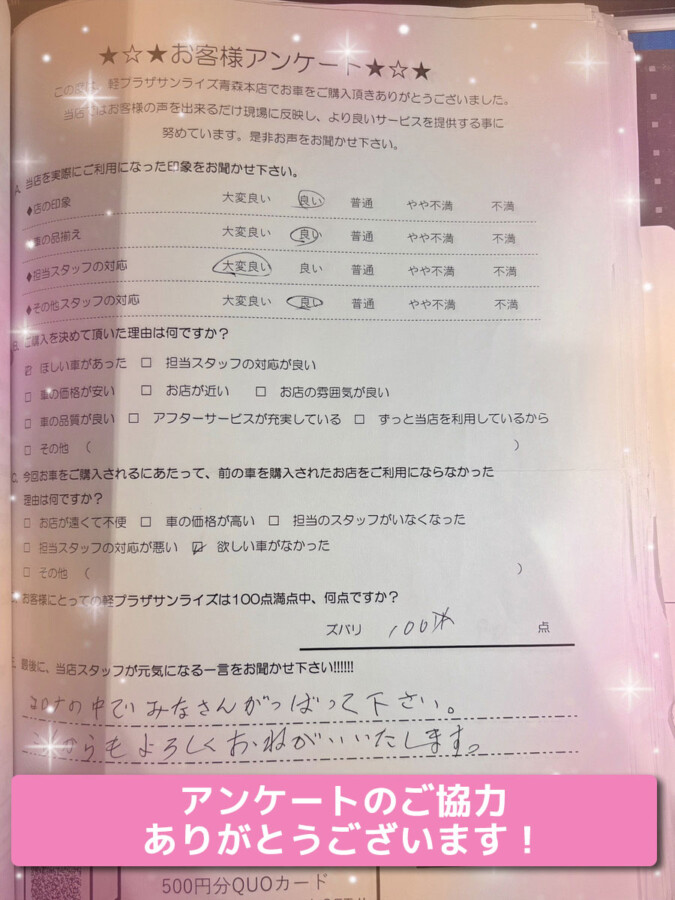 ★☆★お客様アンケート★☆★
この度は、軽プラザサンライズ青森本店でお車をご購入頂きありがとうございました。
当店ではお客様の声を出来るだけ現場に反映し、より良いサービスを提供する事に
努めています。是非お声をお聞かせ下さい。
A. 当店を実際にご利用になった印象をお聞かせ下さい。
◆店の印象 大変良い 良い 普通 やや不満 不満
◆車の品揃え 大変良い 良い 普通 やや不満 不満
◆担当スタッフの対応 大変良い 良い 普通 やや不満 不満
◆その他スタッフの対応 大変良い 良い 普通 やや不満 不満
B. ご購入を決めて頂いた理由は何ですか？
☑ ほしい車があった □ 担当スタッフの対応が良い
□ 車の価格が安い □ お店が近い □ お店の雰囲気が良い
□ 車の品質が良い □ アフターサービスが充実している □ ずっと当店を利用しているから
□ その他 （ ）
C. 今回お車をご購入されるにあたって、前の車を購入されたお店をご利用にならなかった
理由は何ですか？
□ お店が遠くて不便 □ 車の価格が高い □ 担当のスタッフがいなくなった
□ 担当スタッフの対応が悪い ☑ 欲しい車がなかった
□ その他 （ ）
お客様にとっての軽プラザサンライズは100点満点中、何点ですか？
ズバリ 100点 点
最後に、当店スタッフが元気になる一言をお聞かせ下さい!!!!!!
コロナの中でみなさんがっばって下さい。
これからもよろしくおねがいいたします。
アンケートのご協力
ありがとうございます！
500円分QUOカード